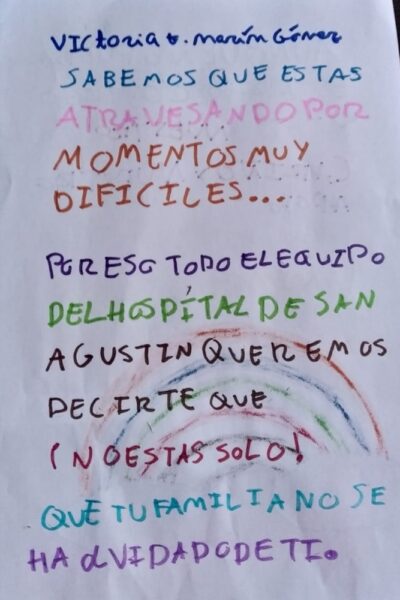 VICtoria t. marín Gómez
SABEMOS QUE ESTAS
ATRAVESANDO POR
MOMENTOS MUY
DIFICILES...
POR ESO TODO EL EQUIPO
DEL HOSPÍTAL DE SAN
AGUSTIN QUEREMOS
DECIRTE QUE
¡NO ESTAS SOLO!
QUE TU FAMILIA NO SE
HA OLVIDADO DE TI.